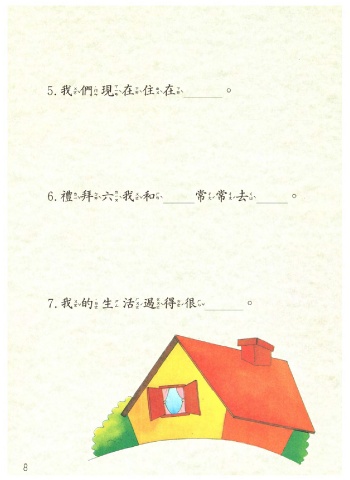 5.我們現在住在______。
6.禮拜六我和____常常去____。
7.我的生活過得很_____。
8